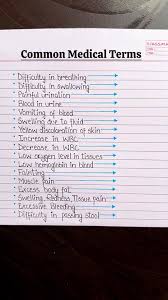 Common Medical Terms
Difficulty in breathing
Difficulty in swallowing
Painful urination
Blood in urine
Vomiting of blood
Swelling due to fluid
Yellow discoloration of skin
Increase in WBC
Decrease in WBC
Low oxygen level in tissues
Low hemoglobin in blood
Fainting
Muscle pain
Excess body fat
Swelling, Redness, Tissue pain
Excessive Bleeding
Difficulty in passing stool